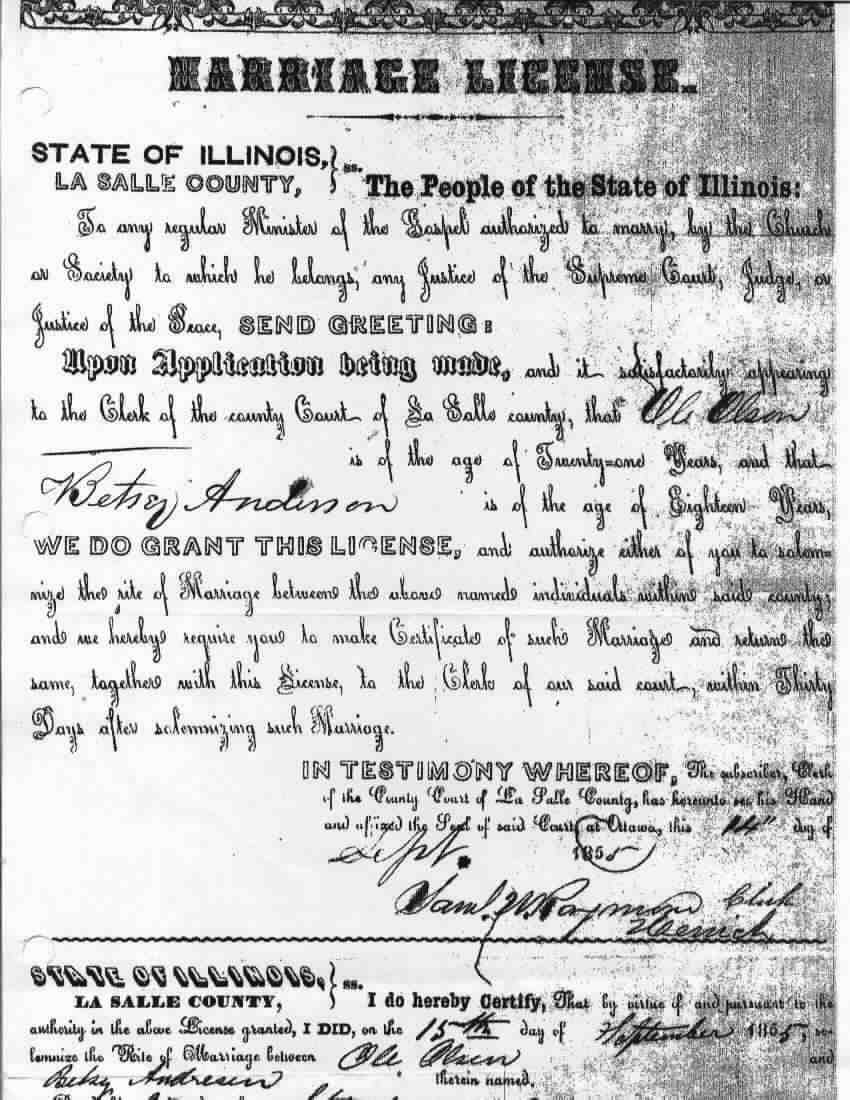 MARRIAGE LICENSE.
STATE OF ILLINOIS, } ss.
LA SALLE COUNTY,
The People of the State of Illinois:
To any regular Minister of the Gospel authorized to marry, by the Church
or Society to which he belongs, any Justice of the Supreme Court, Judge, or
Justice of the Peace, SEND GREETING:
Upon Application being made, and it satisfactorily appearing
to the Clerk of the county Court of La Salle county, that Ole Olson
is of the age of Twenty=one Years, and that
Betsey Anderson is of the age of Eighteen Years,
WE DO GRANT THIS LICENSE, and authorize either of you to solem=
nize the rite of Marriage between the above named individuals within said county;
and we hereby require you to make Certificate of such Marriage and return the
same, together with this License, to the Clerk of our said court, within Thirty
Days after solemnizing such Marriage.
IN TESTIMONY WHEREOF, The subscriber, Clerk
of the County Court of La Salle County, has hereunto set his Hand
and affixed the Seal of said Court, at Ottawa, this 14" day of
Sept. 1855
Saml. W. Raymond Clerk
STATE OF ILLINOIS, } ss.
LA SALLE COUNTY,
I do hereby Certify, That by virtue of and pursuant to the
authority in the above License granted, I DID, on the 15th day of September 1855, so-
lemnize the Rite of Marriage between Ole Olsen and
Betsy Andresen therein named.